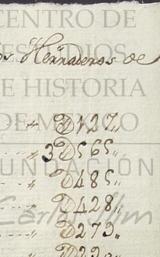 CENTRO DE
ESTUDIOS
DE HISTORIA
DE MEXICO
FUNDACIÓN
Carlos Slim
os Herraderos de
D127,,
3D565,,
D485,,
D428,,
D273,,